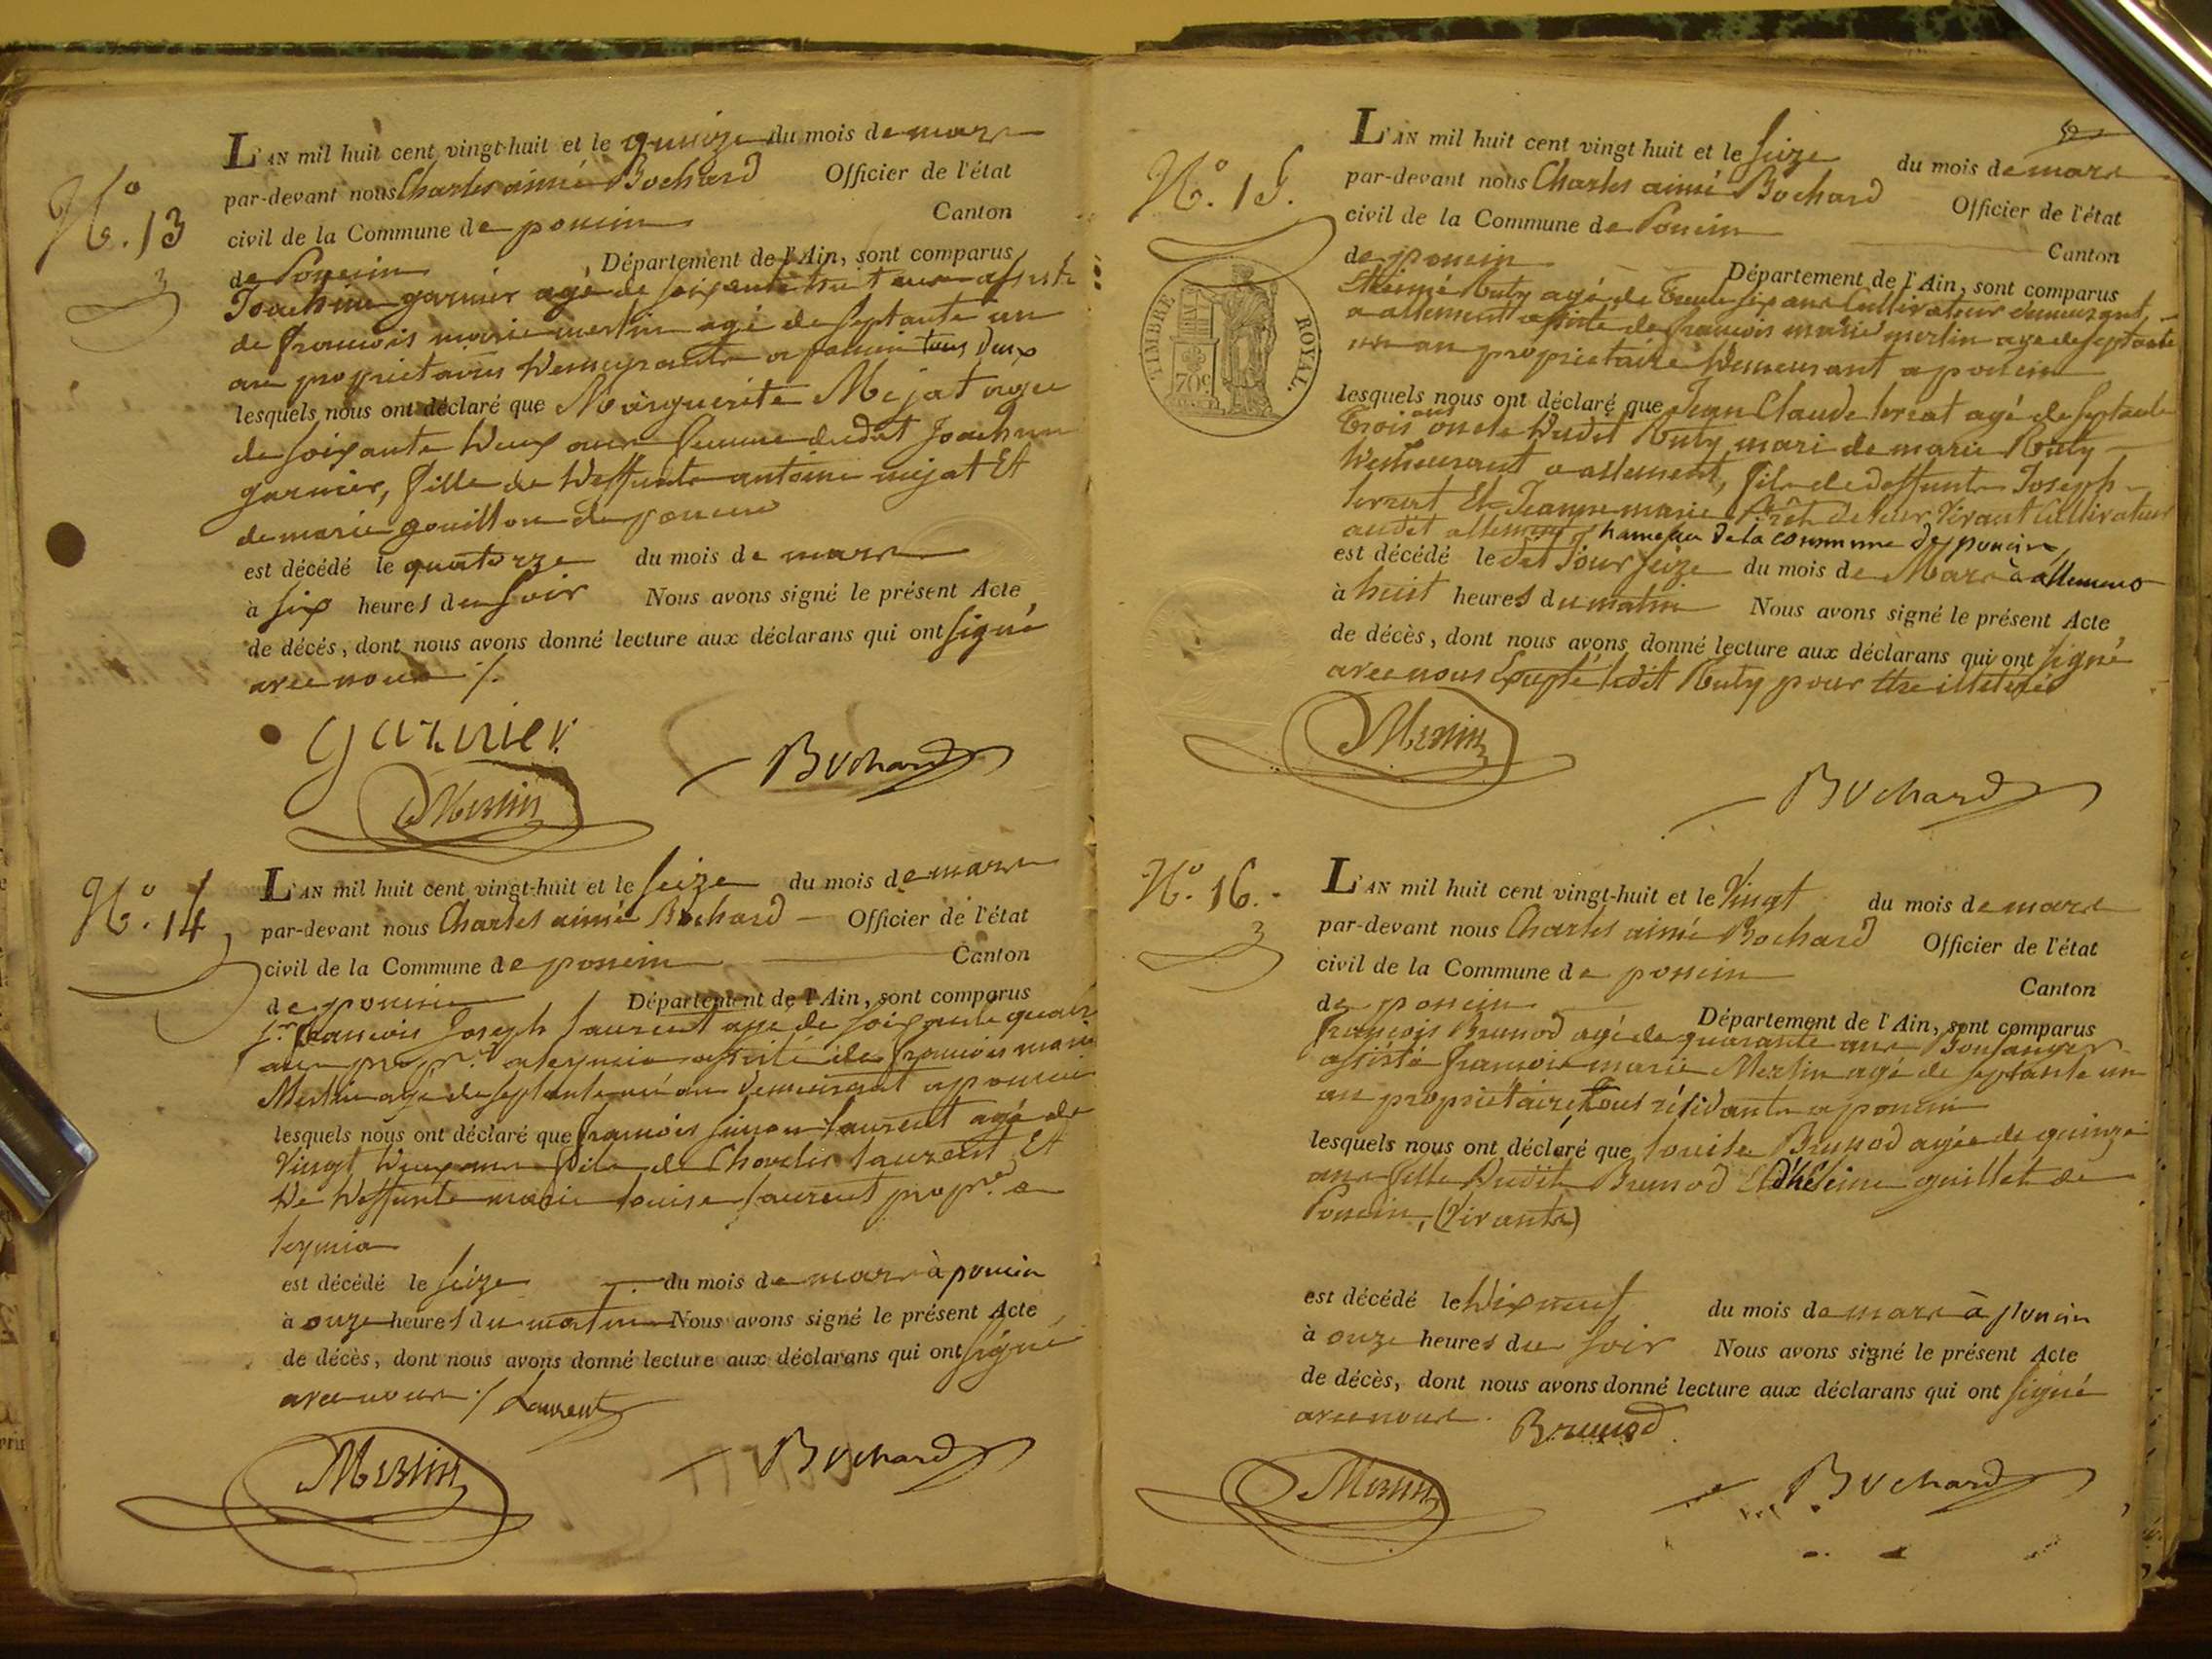 N.o 13
L'AN mil huit cent vingt-huit et le quinze du mois de mars
par-devant nous Charles aimé Bochard Officier de l'état
civil de la Commune de poncin Canton
de Poncin Département de l'Ain, sont comparus
Joachim garnier agé de soixante huit ans assisté
de francois marie merlin agé de septante un
an proprietaires demeurants a poncin tous deux
lesquels nous ont déclaré que Marguerite Mejat agée
de soixante deux ans femme dudit Joachim
garnier, fille de deffunts antoine mejat Et
de marie gouillon de poncin
est décédé le quatorze du mois de mars
à six heures du soir Nous avons signé le présent Acte
de décès, dont nous avons donné lecture aux déclarans qui ont signé
avec nous ./.
garnier
Merlin
Bochard
N.o 14
L'AN mil huit cent vingt-huit et le seize du mois de mars
par-devant nous Charles aimé Bochard Officier de l'état
civil de la Commune de poncin Canton
de poncin Département de l'Ain, sont comparus
s.r francois Joseph Laurent agé de soixante quatre
ans prop.re a leymia assisté de francois marie
Merlin agé de septante un an demeurant a poncin
lesquels nous ont déclaré que francois simon Laurent agé de
vingt deux ans fils de Charles Laurent Et
de deffunte marie louise Laurent prop.re a
leymia
est décédé le seize du mois de mars à poncin
à onze heures du matin Nous avons signé le présent Acte
de décès, dont nous avons donné lecture aux déclarans qui ont signé
avec nous ./. Laurent
Merlin
Bochard
N.o 15.
TIMBRE ROYAL.
70c
L'AN mil huit cent vingt huit et le seize du mois de mars
par-devant nous Charles aimé Bochard Officier de l'état
civil de la Commune de Poncin Canton
de poncin Département de l'Ain, sont comparus
Ruty agé de trente six ans Cultivateur demeurant
a allement assisté de francois marie merlin agé de septante
un an proprietaire demeurant a poncin
lesquels nous ont déclaré que Jean Claude agé de septante
trois ans oncle dudit Ruty mari de marie Ruty
demeurant a allement, fils de deffunts Joseph
Et Jeanne marie de leur vivant Cultivateurs
audit allement hameau de la commune de poncin,
est décédé le dit jour seize du mois de Mars à allement
à huit heures du matin Nous avons signé le présent Acte
de décès, dont nous avons donné lecture aux déclarans qui ont signé
avec nous Excepté ledit Ruty pour être illetéré
Merlin
Bochard
N.o 16.
L'AN mil huit cent vingt-huit et le vingt du mois de mars
par-devant nous Charles aimé Bochard Officier de l'état
civil de la Commune de poncin Canton
de poncin Département de l'Ain, sont comparus
francois Brunod agé de quarante ans Boulanger
assisté francois marie Merlin agé de septante un
an proprietaire tous résidants a poncin
lesquels nous ont déclaré que louise Brunod agée de quinze
ans fille dudit Brunod Et d'héleine guillet de
Poncin, (vivante)
est décédé le dixneuf du mois de mars à poncin
à onze heures du soir Nous avons signé le présent Acte
de décès, dont nous avons donné lecture aux déclarans qui ont signé
avec nous. Brunod
Merlin
Bochard